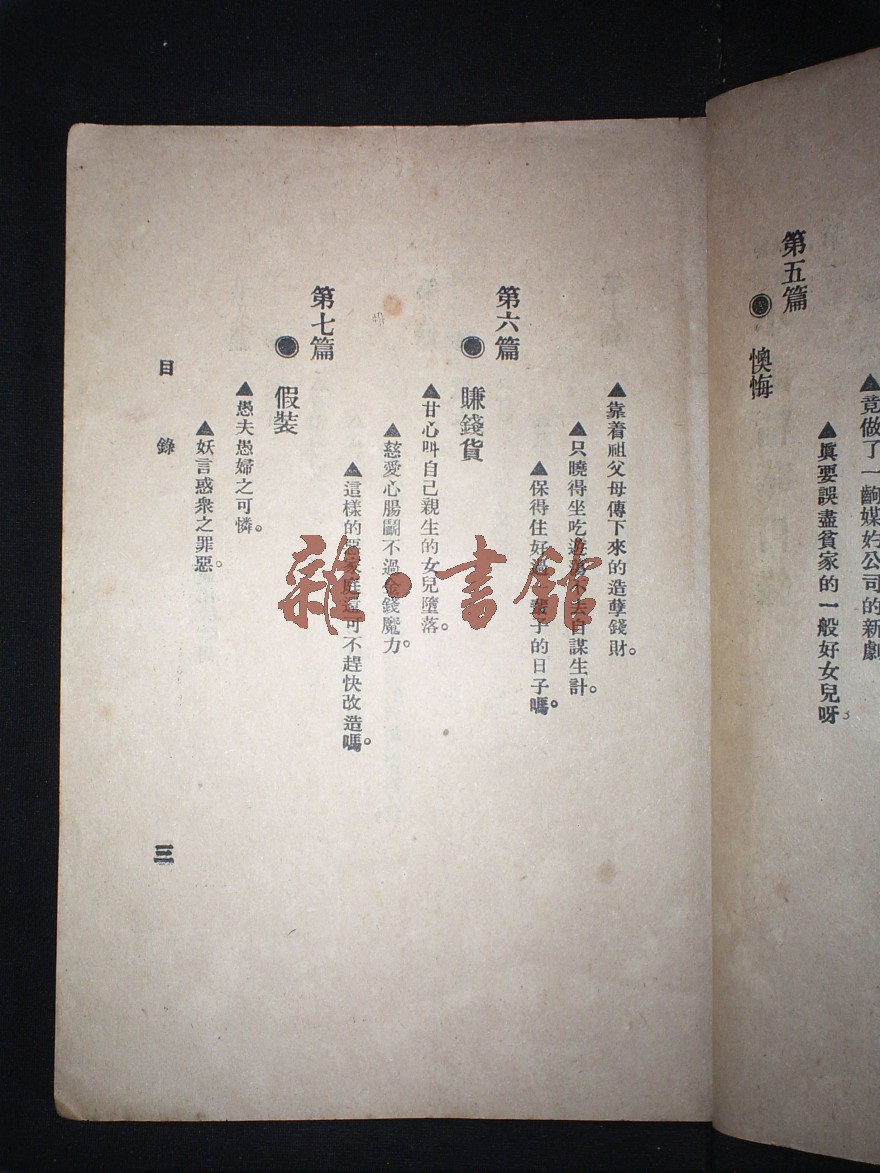 ▲竟做了一齣媒妁公司的新劇
▲眞要誤盡貧家的一般好女兒呀。
第五篇
懊悔
▲靠着祖父母傳下來的造孽錢財。
▲只曉得坐吃 不去自謀生計。
▲保得住好 子的日子嗎。
第六篇
賺錢貨
▲甘心叫自己親生的女兒墮落。
▲慈愛心腸鬬不過金錢魔力。
▲這樣的惡家庭還可不趕快改造嗎。
第七篇
假裝
▲愚夫愚婦之可憐。
▲妖言惑衆之罪惡。
目錄
三
雜·書館